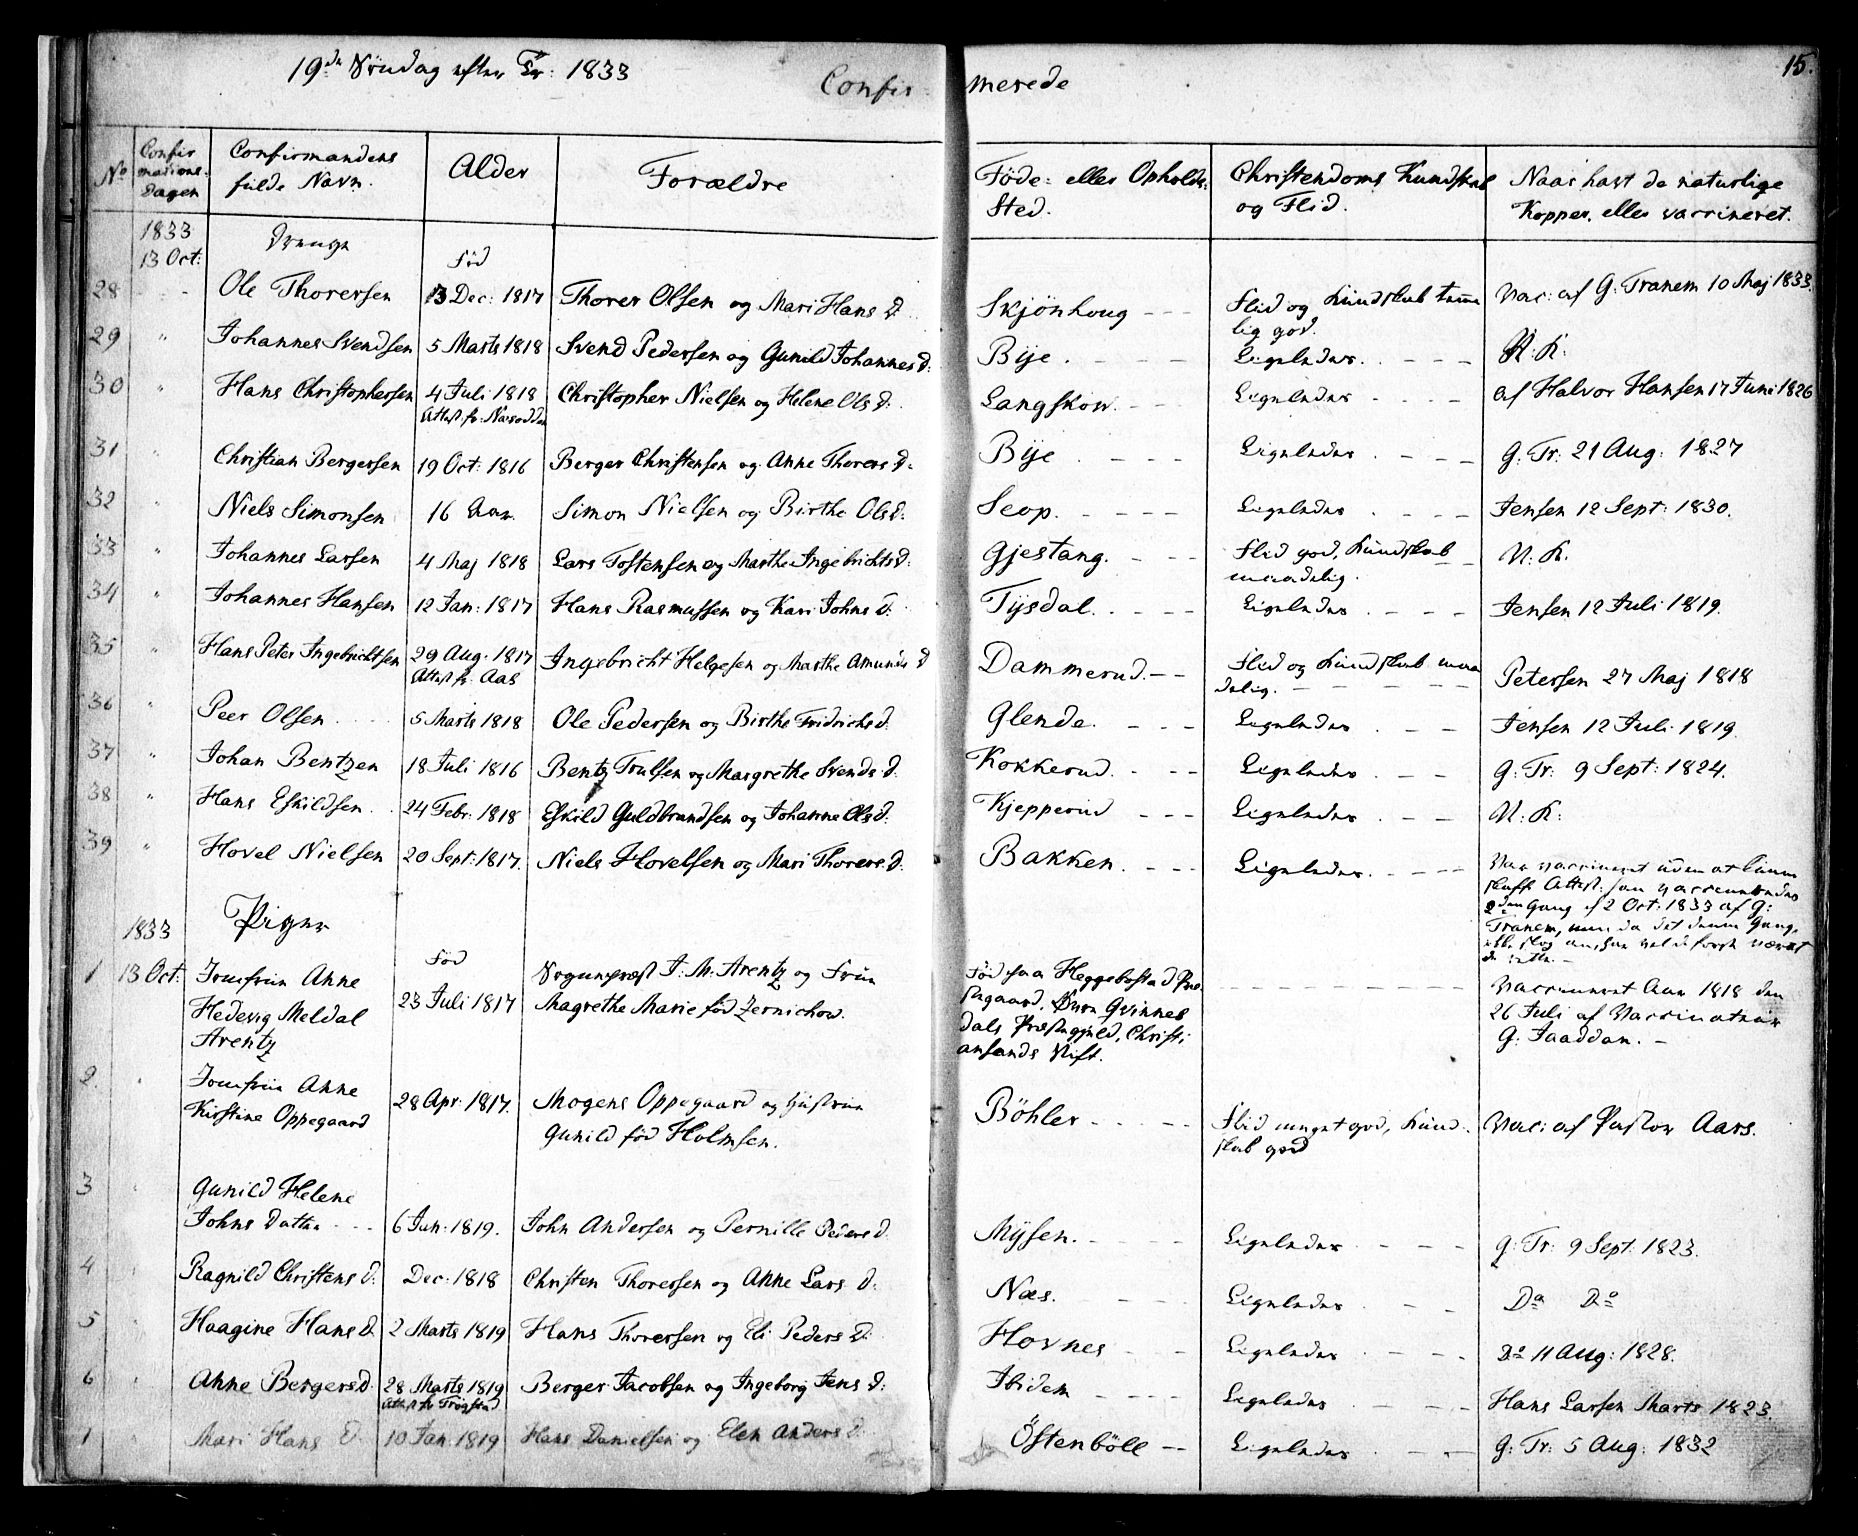 19de Søndag efter Tr: 1833
Confir merede
15.
No | Confirmations-dagen | Confirmandens fulde Navn. | Alder | Forældre | Føde- eller Opholds-Sted. | Christendoms Kundskab og Flid. | Naar havt de naturlige Kopper, eller vaccineret.
1833 13 Oct: Drenge Fød
28 Ole Thorersen 13 Dec: 1817 Thorer Olsen og Mari Hans D. Skjönhoug Flid og Kundskab temmelig god. Vac: af G. Tranem 10 Maj 1833.
29 " Johannes Svendsen 5 Marts 1818 Svend Pedersen og Gunild Johannes D: Bije Ligeledes. N: K:
30 " Hans Christophersen 4 Juli 1818 Attest fr: Næsodden Christopher Nielsen og Helene Ols D: Langskow. Ligeledes af Halvor Hansen 17 Juni 1826
31 " Christian Bergersen 19 Oct: 1816 Berger Christensen og Anne Thorers D: Bije Ligeledes G: Tr: 21 Aug: 1827
32 " Niels Simonsen 16 Aar. Simon Nielsen og Birthe Ols D: Seop. Ligeledes Jensen 12 Sept: 1830.
33 " Johannes Larsen 4 Maj 1818 Lars Tostensen og Marthe Ingebrichts D: Gjestang. Flid god, Kundskab maadelig. N: K.
34 " Johannes Hansen 12 Jan: 1817 Hans Rasmussen og Kari Johns D: Tÿsdal. Ligeledes Jensen 12 Juli 1819.
35 " Hans Peter Ingebrichtsen 29 Aug: 1817 Attest fr: Aas Ingebricht Helgesen og Marthe Amunds D Dammerud. Flid og Kundskab maadelig. Petersen 27 Maj 1818
36 " Peer Olsen 5 Marts 1818 Ole Pedersen og Birthe Fridrichs D. Glende. Ligeledes Jensen 12 Juli 1819.
37 " Johan Bentzen 18 Juli 1816 Bentz Trulsen og Margrethe Svends D. Kokkerud. Ligeledes G: Tr: 9 Sept: 1824.
38 " Hans Eskildsen 24 Febr: 1818 Eskild Guldbrandsen og Johanne Ols D: Kjepperud Ligeledes N: K:
39 " Hovel Nielsen 20 Sept: 1817. Niels Hovelsen og Mari Thorers D: Bakken. Ligeledes. Var vaccineret uden at kunne skaffe Attest: han vaccineredes 2den Gang d 2 Oct: 1833 af G: Tranem, men da det denne Gang ikke slog an,
1833 Piger Fød
1 13 Oct: Jomfrue Anne Hedevig Meldal Arentz 23 Juli 1817 Sogneprest J: M: Arentz og Frue Magrethe Marie fød Zernichow. Fød paa Heggebostad Præstegaard, Qvinnesdals Præstegjeld, Christiansands Stift. Vaccineret Aar 1818 den 26 Juli af Vaccinateur G: Jaaddan.
2. " Jomfrue Anne Kirstine Oppegaard 28 Apr: 1817. Mogens Oppegaard og Hustrue Gunild fød Holmsen. Böhler Flid meget god, Kundskab god Vac: af Pastor Aars.
3 " Gunild Helene Johns Datter 6 Jan: 1819. John Andersen og Pernille Peders D. Mÿsen. Ligeledes G: Tr: 9 Sept: 1823.
4 " Ragnild Christens D: Dec: 1818 Christen Thorersen og Anne Lars D: Næs. Ligeledes Do Do
5 " Haagine Hans D. 2 Marts 1819 Hans Thorersen og Eli Peders D: Hovnes Ligeledes Do 11 Aug: 1828.
6 " Anne Bergers D. 28 Marts 1819 Attest fr Trögstad Berger Jacobsen og Ingeborg Jens D: Ibidem Ligeledes Hans Larsen Marts 1823.
1 Mari Hans D 10 Jan: 1819 Hans Danielsen og Elen Anders D: Östenböll Ligeledes G: Tr: 5 Aug: 1832